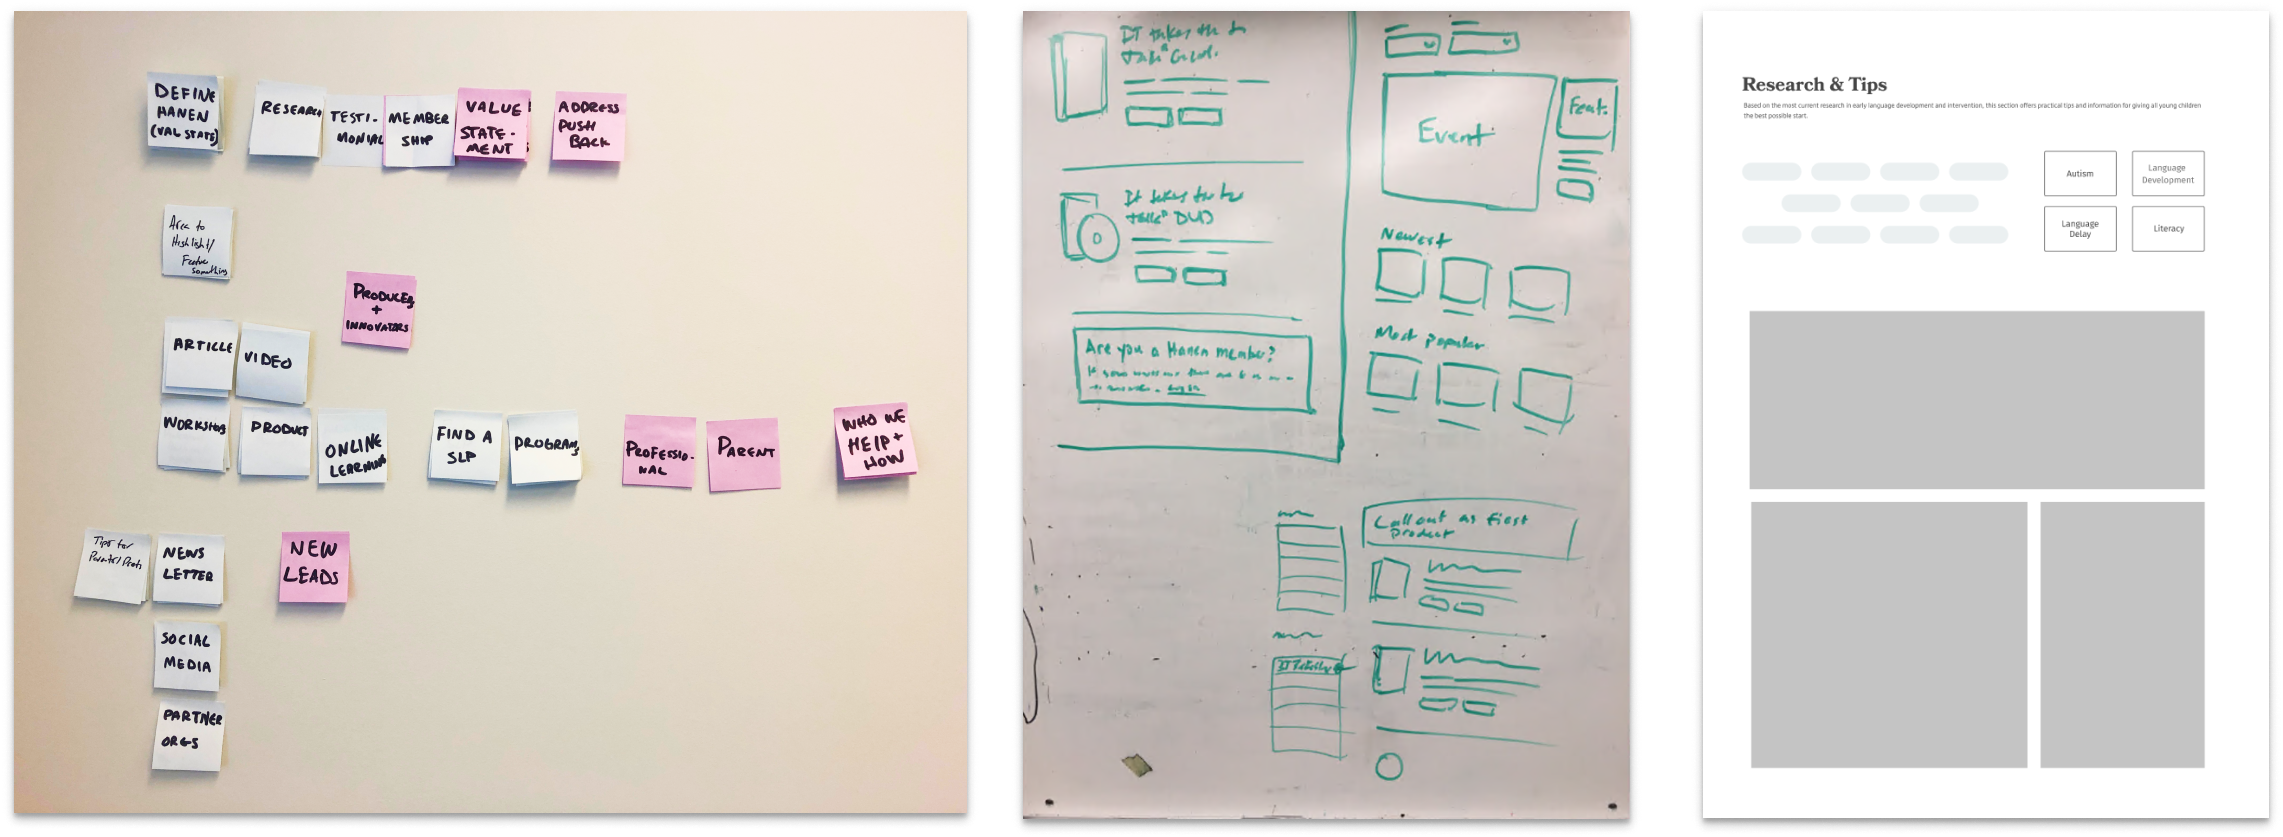 DEFINE
HANEN
(VAL STATE)
RESEARCH
TESTI-
MONIAL
MEMBER
SHIP
VALUE
STATE-
MENT
ADDRESS
PUSH
BACK
Area to
Highlight/
Feature
something
PRODUCER
+
INNOVATORS
ARTICLE
VIDEO
WORKSHOP
PRODUCT
ONLINE
LEARNING
FIND A
SLP
PROGRAM
PROFESSIO-
NAL
PARENT
WHO WE
HELP +
HOW
Tips for
NEWS
LETTER
NEW
LEADS
SOCIAL
MEDIA
PARTNER
ORGS
IT takes
It takes
DVD
Are you a Hanen member?
Event
Feat.
Newest
Most popular
Call out as first
product
Research & Tips
Based on the most current research in early language development and intervention, this section offers practical tips and information for giving all young children
the best possible start.
Autism
Language
Development
Language
Delay
Literacy